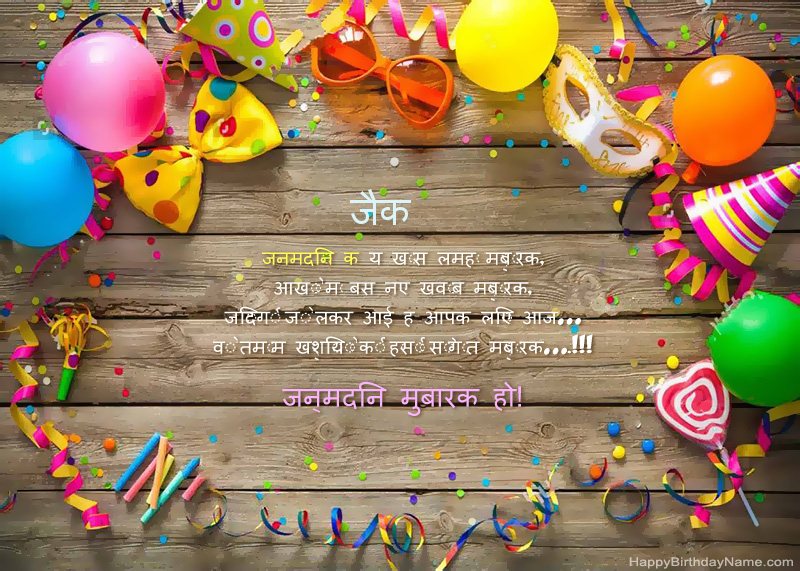 जैक
जनमदनि क य खास लमहा मबारक,
आखों में बस नए खवाब मबारक,
जदिगी जो लेकर आई ह आपक लएि आज...
वो तमाम खशयिों की हसीं सौगात मबारक...!!!
जन्मदनि मुबारक हो!
HappyBirthdayName.com